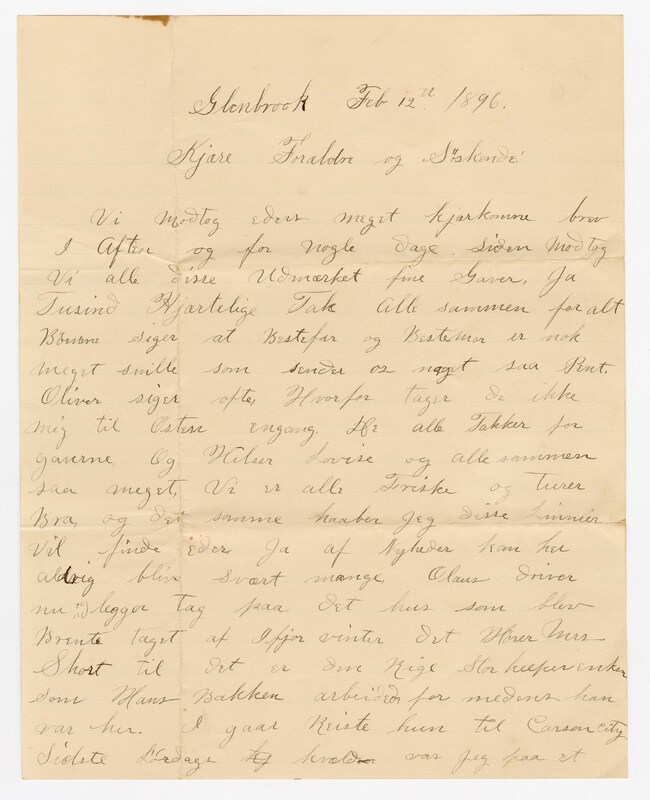 Glenbrook Feb 12th 1896.
Kjære Forældre og Söskende
Vi modtog eders meget kjærkomne brev
I Aften og for nogle dage siden Modtog
Vi alle disse Udmærket fine Gaver, Ja
Tusind Hjærtelige Tak Alle sammen for alt
Börnene siger at Bestefar og Bestemor er nok
meget snille som sender os noget saa Pent.
Oliver siger ofte, Hvorfor tager de ikke
mig til Osten engang. De alle Takker for
gaverne, Og Hilser Lovise og alle sammen
saa meget, Vi er alle Friske og turer
Bra, og det samme haaber Jeg disse Linnier
Vil finde eder. Ja af Nyheder kan her
aldrig bliv svært mange, Olaus driver
nu legger tag paa det hus som blev
Brente taget af Ifjor vinter det Hörer Mrs
Short til det er den Rige Storkeeper enken
som Hans Bakken arbeided for medens han
var her. I gaar Reiste hun til Carson City
Sidste Lördags kvelden var Jeg paa et